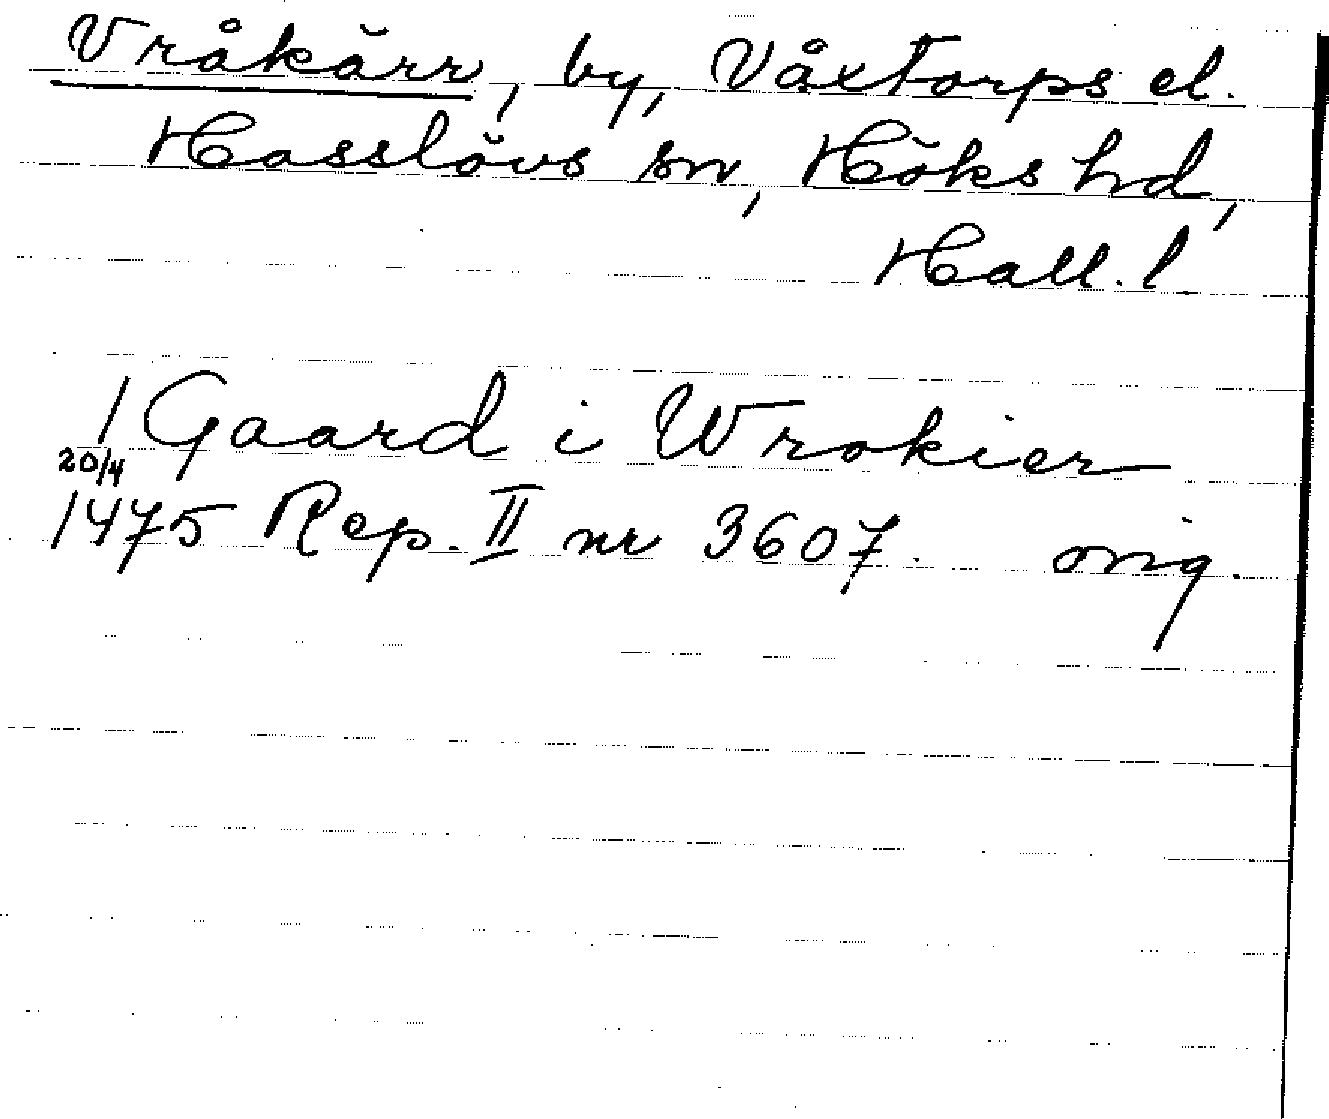 Vråkärr, by, Våxtorps el.
Hasslövs sn, Höks hd,
Hall. l
1 Gaard i Wrokier
20/4
1475 Rep. II nr 3607. orig.